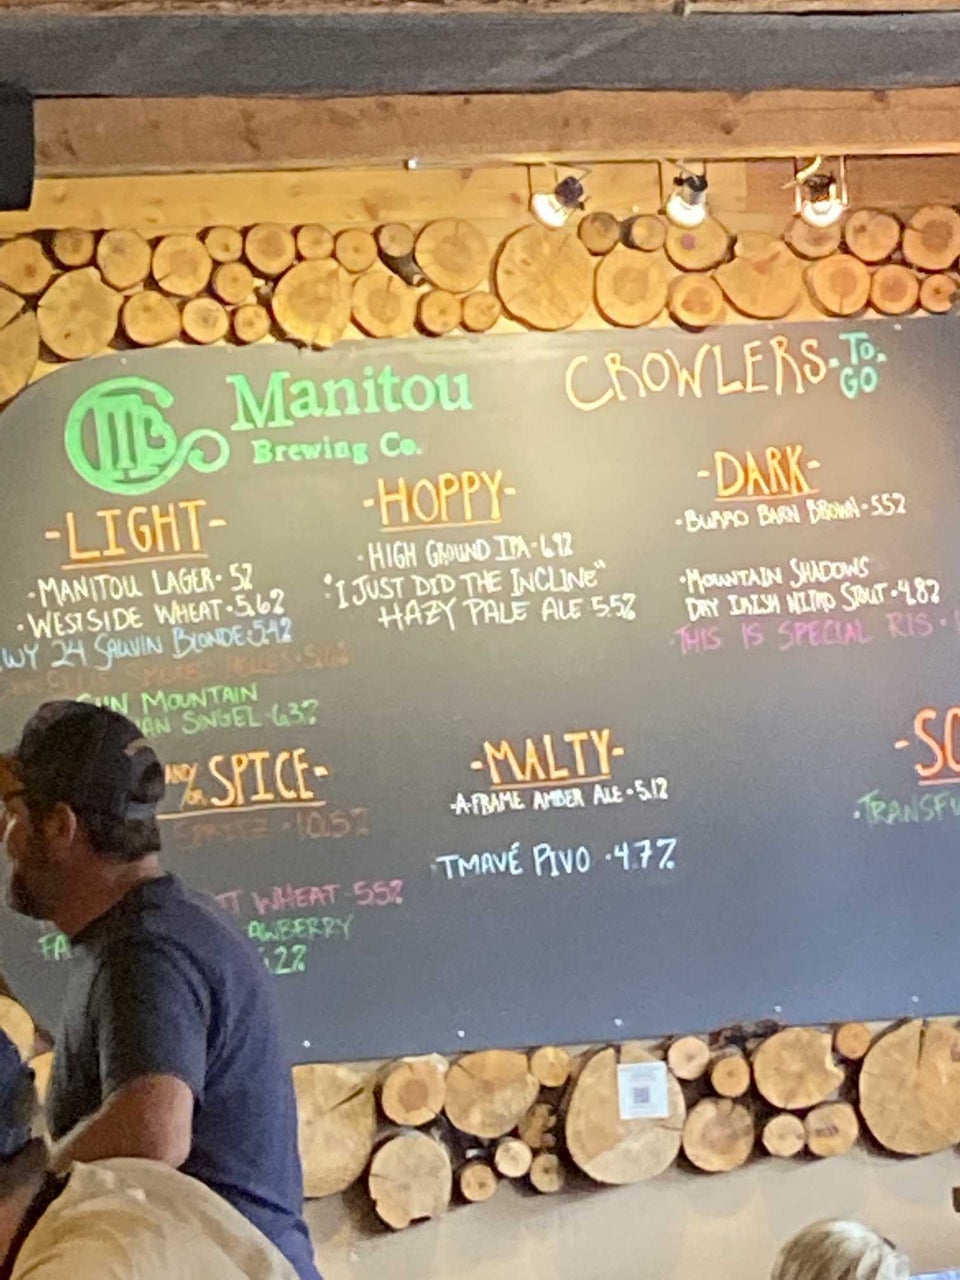 Manitou
Brewing Co.
CROWLERS
-TO-
GO
-LIGHT-
• MANITOU LAGER • 5%
• WESTSIDE WHEAT • 5.6%
WY 24 SAUVIN BLONDE • 5.4%
HELLES • 5.6%
MOUNTAIN
SINGEL • 6.3%
-HOPPY-
• HIGH GROUND IPA • 6.9%
• "I JUST DID THE INCLINE"
HAZY PALE ALE 5.5%
-DARK-
• BURRO BARN BROWN • 5.5%
• MOUNTAIN SHADOWS
DRY IRISH NITRO STOUT • 4.8%
• THIS IS SPECIAL RIS •
AND/OR SPICE-
10.5%
WHEAT 5.5%
FA
.2%
-MALTY-
• A-FRAME AMBER ALE • 5.1%
• TMAVÉ PIVO • 4.7%
-SO
• TRANSFU